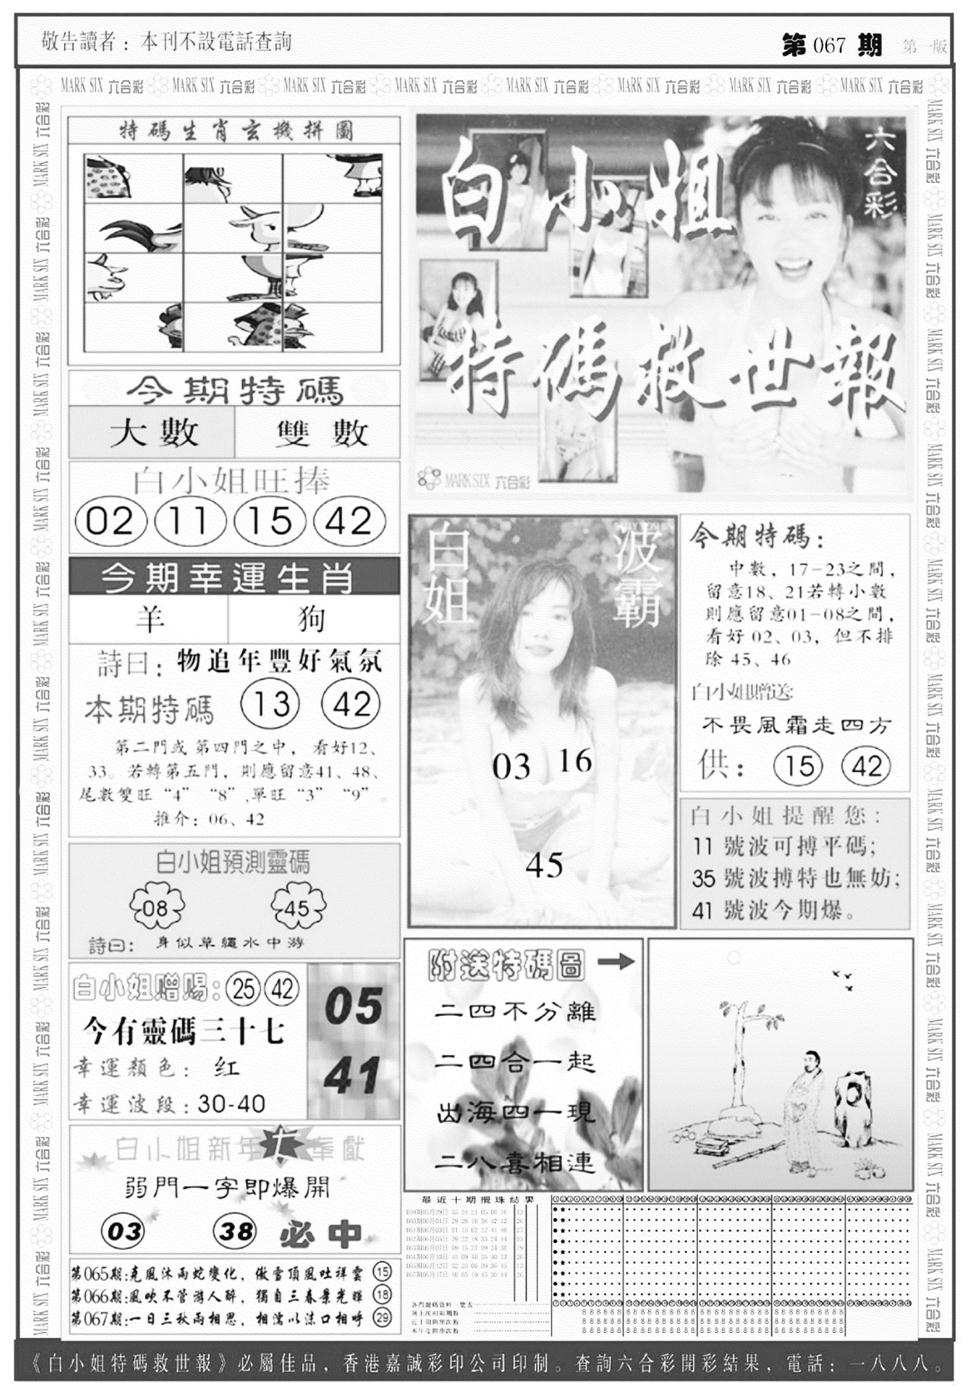 敬告讀者：本刊不設電話查詢
第 067 期 第一版
MARK SIX 六合彩 MARK SIX 六合彩 MARK SIX 六合彩 MARK SIX 六合彩 MARK SIX 六合彩 MARK SIX 六合彩 MARK SIX 六合彩 MARK SIX 六合彩
特碼生肖玄機拼圖
六合彩
白小姐
特碼救世報
MARK SIX 六合彩
今期特碼
大數 雙數
白小姐旺捧
02 11 15 42
今期幸運生肖
羊 狗
詩曰：物追年豐好氣氛
本期特碼 13 42
第二門或第四門之中，看好12、
33。若轉第五門，則應留意41、48、
尾數雙旺“4”“8”，單旺“3”“9”。
推介：06、42
白小姐預測靈碼
08 45
詩曰：身似草繩水中游
白小姐赠赐：25 42
今有靈碼三十七
幸運顏色：红
幸運波段：30-40
05
41
白小姐新年奉獻
弱門一字即爆開
03 38 必中
第065期：克風沐雨蛇變化，傲雪頂風吐祥雲 15
第066期：風吹不管游人醉，獨自三春景光輝 18
第067期：一日三秋兩相思，相濡以沫口相呼 29
白姐 波霸
03 16
45
今期特碼：
中數，17-23之間，
留意18、21若轉小數
則應留意01-08之間，
看好 02、03，但不排
除 45、46
白小姐贈送：
不畏風霜走四方
供：15 42
白小姐提醒您：
11 號波可搏平碼；
35 號波搏特也無妨；
41 號波今期爆。
附送特碼圖
二四不分離
二四合一起
出海四一現
二八喜相連
最近十期攪珠結果
《白小姐特碼救世報》必屬佳品，香港嘉誠彩印公司印制。查詢六合彩開彩結果，電話：一八八八。